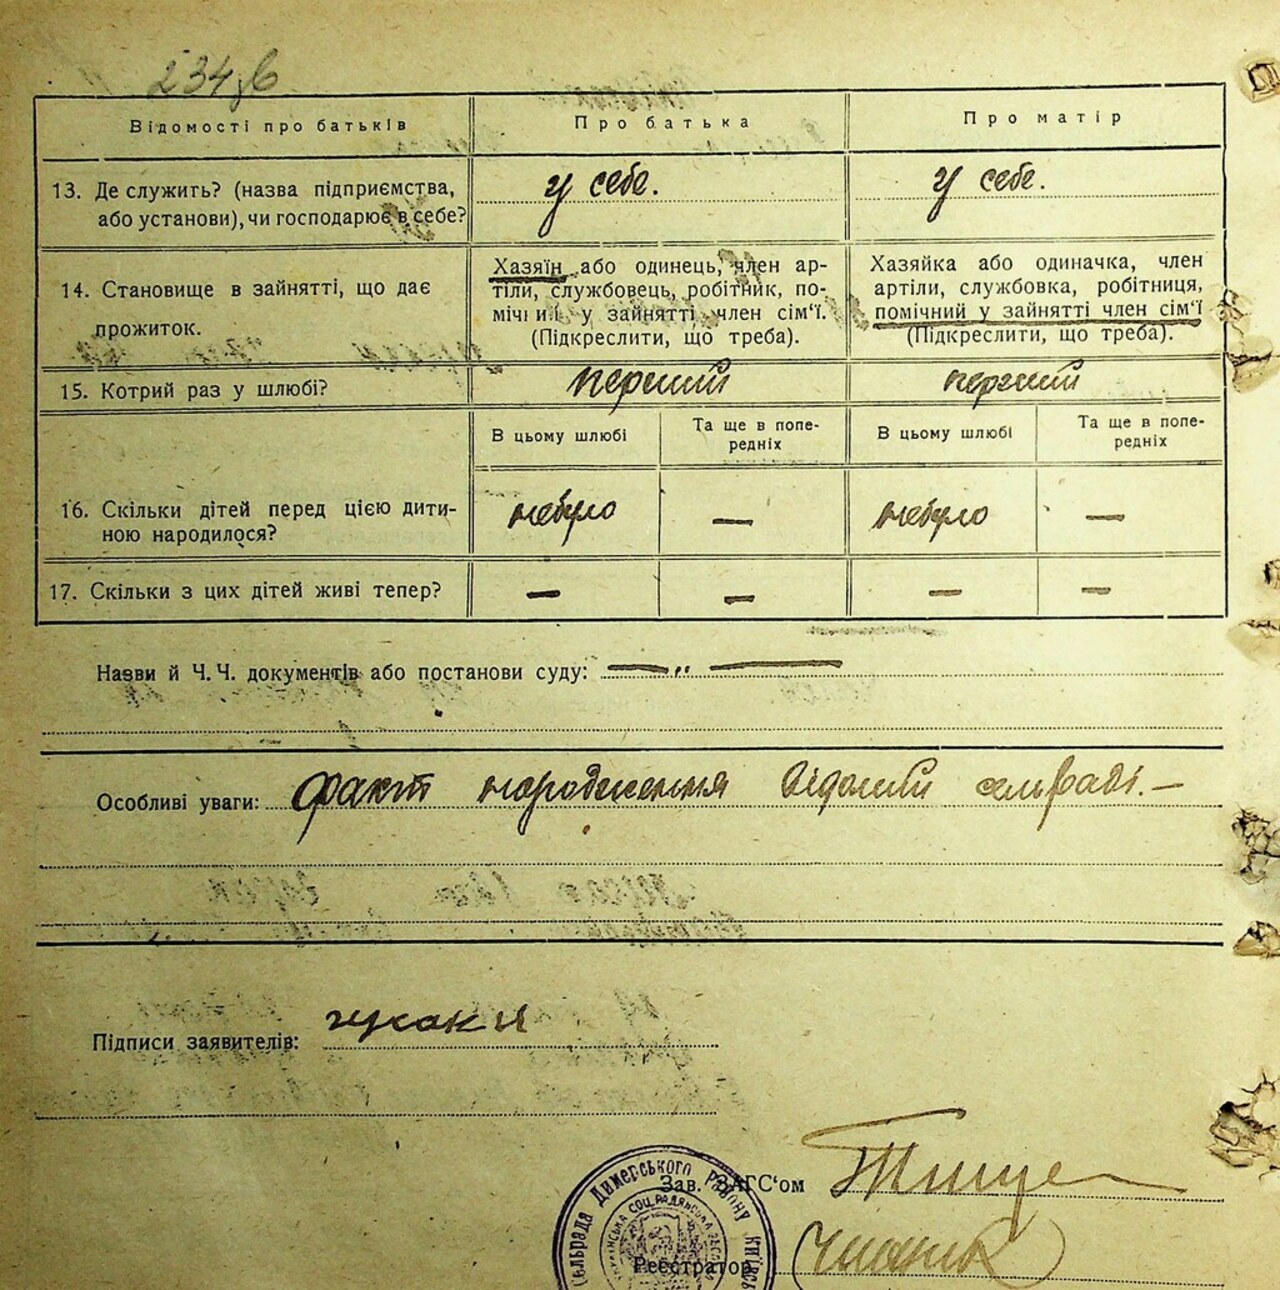 234зв
Відомості про батьків
Про батька
Про матір
13. Де служить? (назва підприємства,
або установи), чи господарює в себе?
у себе.
у себе.
14. Становище в зайнятті, що дає
прожиток.
Хазяїн або одинець, член ар-
тіли, службовець, робітник, по-
мічний у зайнятті член сім'ї.
(Підкреслити, що треба).
Хазяйка або одиначка, член
артіли, службовка, робітниця,
помічний у зайнятті член сім'ї
(Підкреслити, що треба).
15. Котрий раз у шлюбі?
перший
перший
В цьому шлюбі
Та ще в попе-
редніх
В цьому шлюбі
Та ще в попе-
редніх
16. Скільки дітей перед цією дити-
ною народилося?
небуло
—
небуло
—
17. Скільки з цих дітей живі тепер?
—
—
—
—
Назви й Ч. Ч. документів або постанови суду: — „ —
Особливі уваги: факт народження відомий сельраді. —
Підписи заявителів:
Зав. ЗАГС'ом
Реєстратор
сельрада Димерського району Київсь
СОЦ. РАДЯНСЬКА